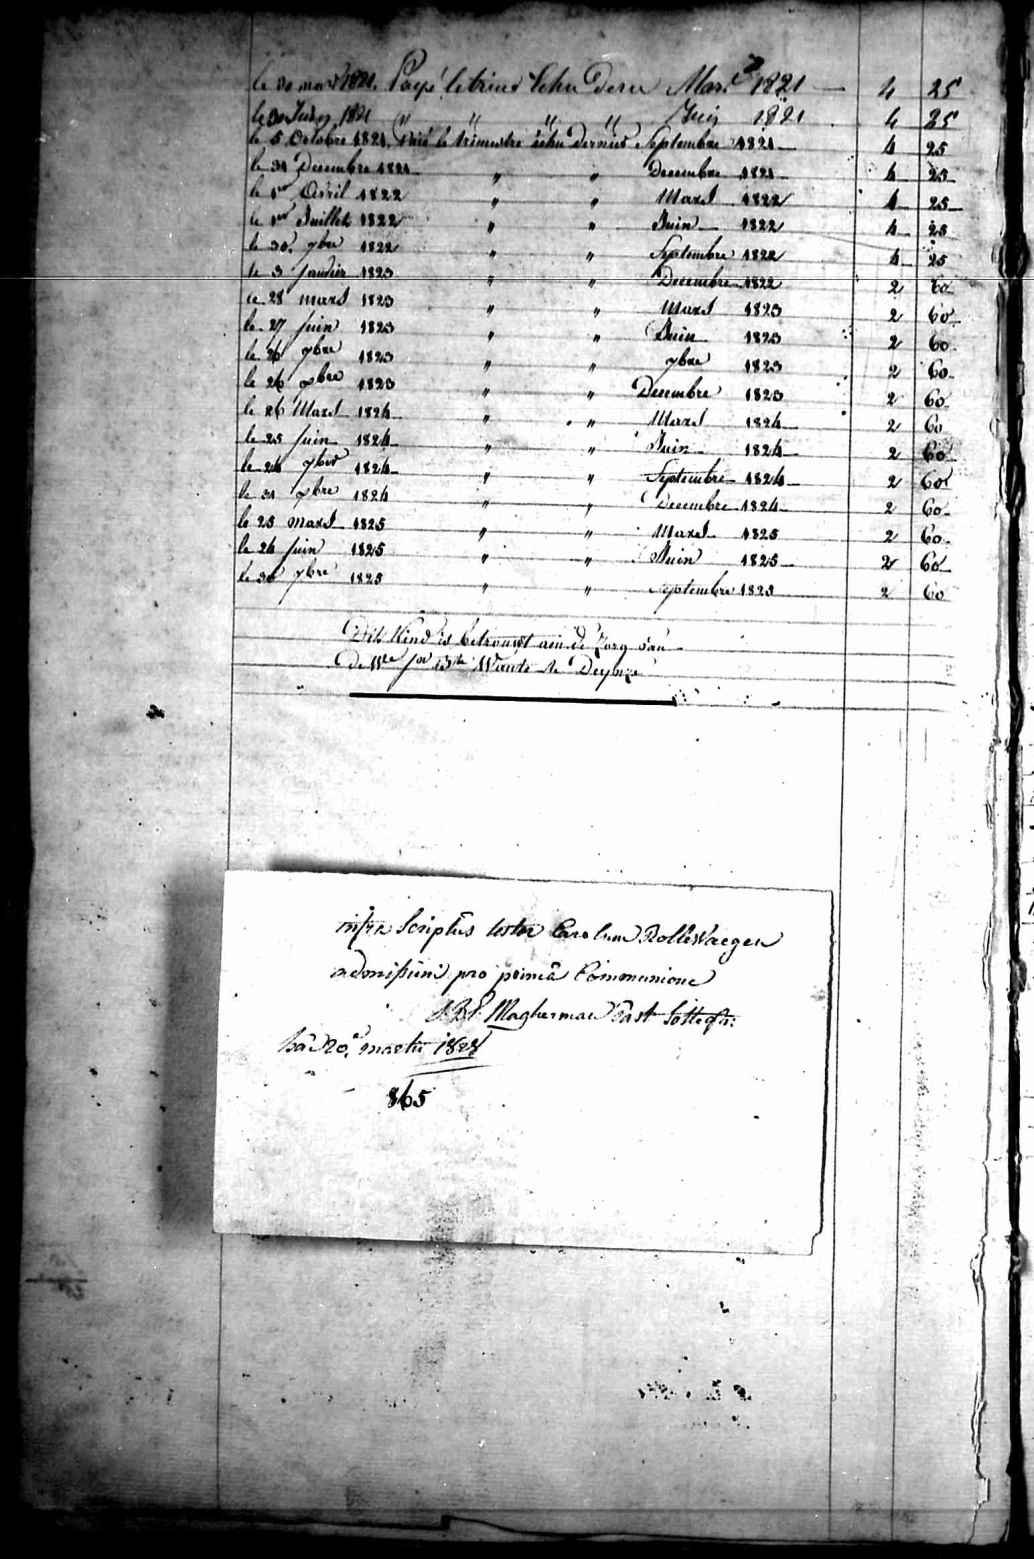 le 30 mars 1821. Payé le trim. Echu Dern. Mars 1821 — 4 25
le 30 Juin 1821 " " " " Juin 1821 4 25
le 5 Octobre 1821. Paié le trimestre échu dernier Septembre 1821 4 25
le 31 Decembre 1821 " " Decembre 1821 4 25
le 1er Avril 1822 " " Mars 1822 4 25
le 1er Juillet 1822 " " Juin 1822 4 25
le 30. 7bre 1822 " " Septembre 1822 4 25
le 3 Janvier 1823 " " Decembre 1822 2 60
le 28 mars 1823 " " Mars 1823 2 60
le 27 Juin 1823 " " Juin 1823 2 60
le 26 7bre 1823 " " 7bre 1823 2 60
le 26 xbre 1823 " " Decembre 1823 2 60
le 26 Mars 1824 " " Mars 1824 2 60
le 25 Juin 1824 " " Juin 1824 2 60
le 24 7bre 1824 " " Septembre 1824 2 60
le 31 xbre 1824 " " Decembre 1824 2 60
le 25 mars 1825 " " Mars 1825 2 60
le 24 Juin 1825 " " Juin 1825 2 60
le 30 7bre 1825 " " Septembre 1825 2 60
Dit Kind is betrouwt aen de Zorg van
De Wwe Wante te Deynze
infra scriptus testor Carolum Rollewaegen
admissum pro primâ Communione
Magherman Past
hac 20a martii 1828
865